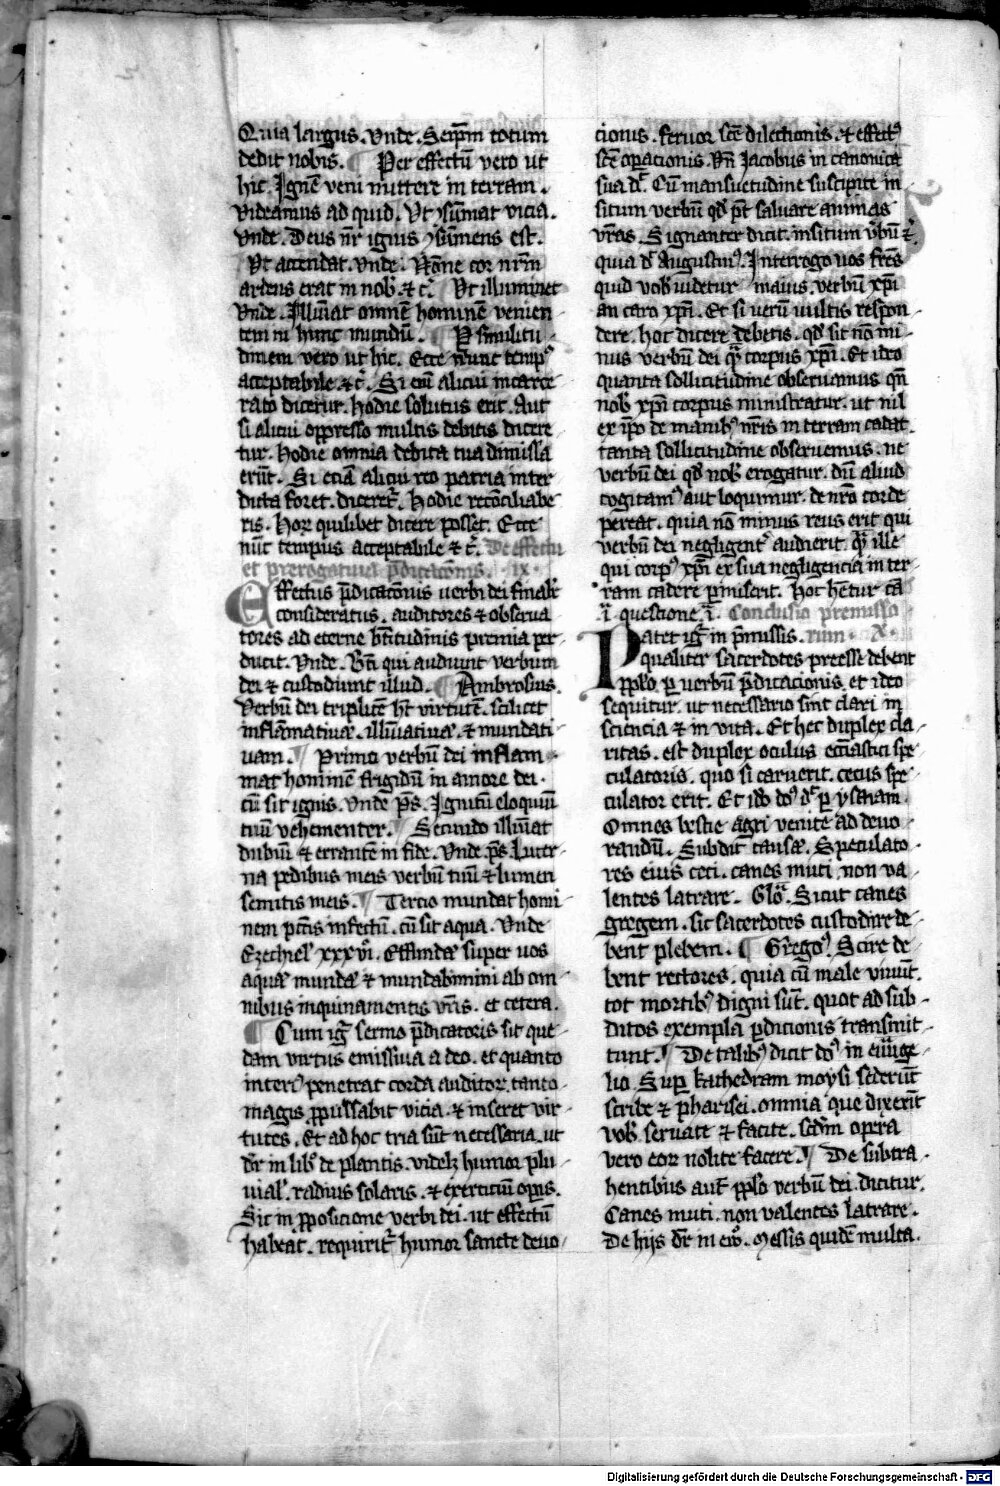 Quia largus. Vnde. Seip̄m totum
dedit nobis. ¶ Per effectū vero ut
hic. Ignē veni mittere in terram.
Videamus ad quid. Vt ꝯsūmat vicia.
Vnde. Deus nr̄ ignis ꝯsūmens est.
Vt accendat. Vnde. Nōne cor nr̄m
ardens erat in nob̄. ⁊ c̄. Vt illuminet
Vnde. Illūīat omnē hominē venien
tem in hunc mundū. ¶ Ꝑ similitu
dinem vero ut hic. Ecce nunc tempꝰ
acceptabile. ⁊c̄. Si enī alicui incarce
rato diceret᷑. Hodie solutus erit. Aut
si alicui oppresso multis debitis dicere
tur. Hodie omnia debita tua dimissa
erūt. Si eciā alicui reo patria inter
dicta foret. diceret᷑. Hodie recōciliabe
ris. Hoꝝ quilibet dicere posset. Ecce
nūc tempus acceptabile ⁊ c̄. De effectu
et prerogatiua p̄dicacōnis. ix.
Effectus p̄dicacōnis uerbi dei finalit᷑
consideratus. auditores ⁊ obserua
tores ad eterne bt̄itudinis premia per
ducit. Vnde. Bt̄i qui audiunt verbum
dei ⁊ custodiunt illud. ¶ Ambrosius.
Verbū dei triplicē hꝫ virtutē. scilicet
inflāmatiuā. illūīatiuā. ⁊ mundati
uam. ¶ Primo verbū dei inflam
mat hominē frigidū in amore dei.
cū sit ignis. Vnde p̄s. Ignitū eloquiū
tuū vehementer. ¶ Secundo illūīat
dubiū ⁊ errantē in fide. Vnde. p̄s. Lucer
na pedibus meis verbū tuū ⁊ lumen
semitis meis. ¶ Tercio mundat homi
nem pctīs infectū. cū sit aqua. Vnde
Ezechieľ xxxvi. Effundā super uos
aquā mundā ⁊ mundabimini ab om
nibus inquinamentis vr̄is. et cetera.
¶ Cum igr̄ sermo p̄dicatoris sit que
dam virtus emissiua a deo. et quanto
interiꝰ penetrat corda auditoꝝ. tanto
magis ꝓpulsabit vicia. ⁊ inseret vir
tutes. Et ad hoc tria sūt necessaria. ut
dr̄ in libꝰ de plantis. videlꝫ humor plu
uialꝭ. radius solaris. ⁊ exerciciū oꝑis.
Sic in ꝓposicione verbi dei. ut effectū
habeat. requirit᷑ humor sancte deuo
cionis. feruor sc̄e dilectionis. ⁊ effcūs
sc̄e oꝑacionis. Vn̄ Jacobus in canonica
sua dc̄. Cū mansuetudine suscipite in
situm verbū qd̄ pt̄ saluare animas
vr̄as. Signanter dicit. insitum v̄bū ⁊c̄.
quia dc̄ Augustinꝰ. Interrogo uos frēs
quid vob̄ videtur maius. verbū xp̄i
an caro xp̄i. Et si verū vultis respon
dere. hoc dicere debetis. qd̄ sit nō mi
nus verbū dei qᷓ corpus xp̄i. Et ideo
quanta sollicitudine obseruamus qn̄
nob̄ xp̄i corpus ministratur. ut nil
ex ip̄o de manibꝰ nr̄is in terram cadat.
tanta sollicitudine obseruemus. ne
verbū dei qd̄ nob̄ erogatur. dū aliud
cogitamꝰ aut loquimur. de nr̄o corde
pereat. quia nō minus reus erit qui
verbū dei negligent᷑ audierit. qᷓ ille
qui corpꝰ xp̄i ex sua negligencia in ter
ram cadere ꝑmiserit. Hoc hr̄etur cā
.i. questione .i. Conclusio premisso
Patet igr̄ in p̄missis. rum. x.
qualiter sacerdotes preesse debent
ꝓpl̄o ꝑ verbū p̄dicacionis. et ideo
sequitur. ut necessario sint clari in
sciencia ⁊ in vita. Et hec duplex cla
ritas. est duplex oculus ecc̄iastici spe
culatoris. quo si caruerit. cecus spe
culator erit. Et ido dn̄s dc̄ ꝑ ysaiam.
Omnes bestie agri venite ad deuo
randū. Subdit causā. Speculato
res eius ceci. canes muti non va
lentes latrare. Glo. Sicut canes
gregem. sic sacerdotes custodire de
bent plebem. ¶ Gregoꝰ. Scire de
bent rectores. quia cū male viuūt.
tot mortibꝰ digni sūt. quot ad sub
ditos exempla ꝑdicionis transmit
tunt. ¶ De talibꝰ dicit dn̄s in euāge
lio. Suꝑ kathedram moysi sederūt
scribe ⁊ pharisei. omnia que dixerīt
vob̄ seruate ⁊ facite. scd̄m opera
vero eoꝝ nolite facere. ¶ De subtra
hentibus aut̄ ꝓpl̄o verbū dei. dicitur.
Canes muti. non valentes latrare.
De hijs dr̄ in ewͦ. Messis quidē multa.
Digitalisierung gefördert durch die Deutsche Forschungsgemeinschaft - DFG